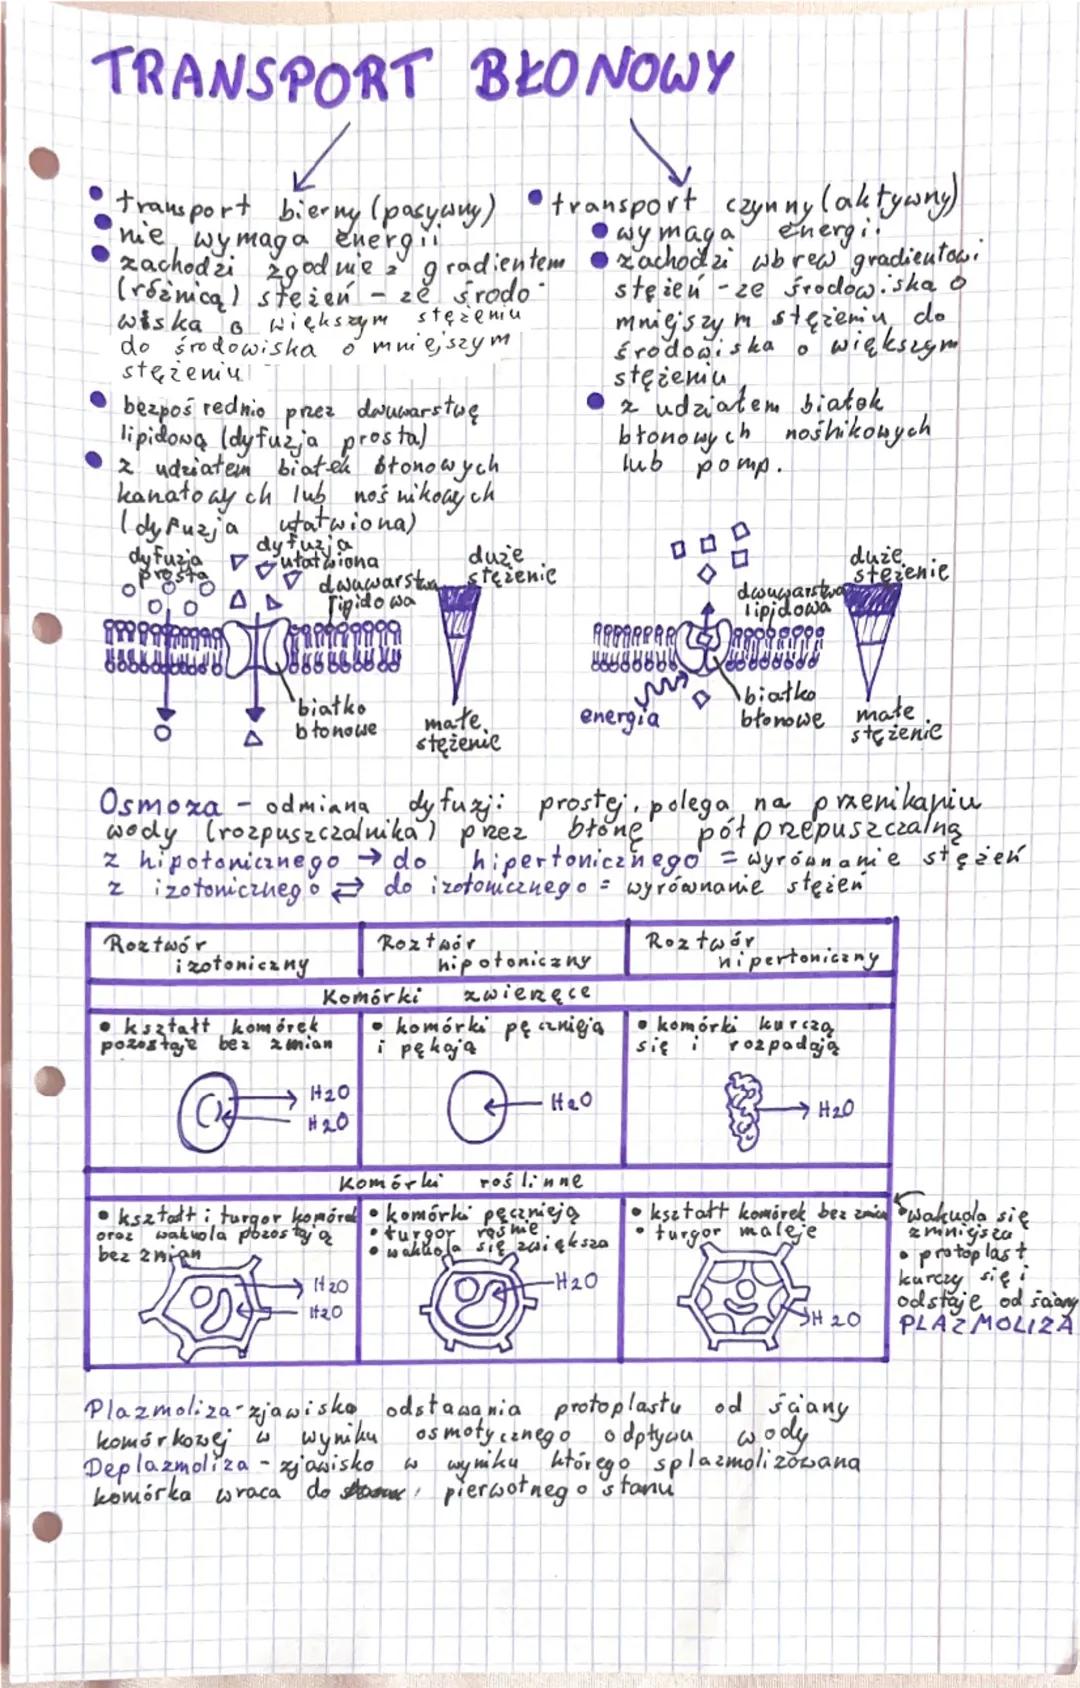 TRANSPORT BŁONOWY
• transport bierny (pasywny)
• nie wymaga energii
• zachodzi zgodnie z gradientem
(różnicą) stężeń - ze środo-
wiska o większym stężeniu
do środowiska o mniejszym
stężeniu
• bezpośrednio przez dwuwarstwę
lipidową (dyfuzja prosta)
• z udziałem białek błonowych
kanałowych lub nośnikowych
(dyfuzja ułatwiona)
• transport czynny (aktywny)
• wymaga energii
• zachodzi wbrew gradientowi
stężeń - ze środowiska o
mniejszym stężeniu do
środowiska o większym
stężeniu
• z udziałem białek
błonowych nośnikowych
lub pomp.
dyfuzja
prosta
dyfuzja
ułatwiona
dwuwarstwa
lipidowa
duże
stężenie
białko
błonowe
małe
stężenie
dwuwarstwa
lipidowa
duże
stężenie
energia
białko
błonowe
małe
stężenie
Osmoza - odmiana dyfuzji prostej, polega na przenikaniu
wody (rozpuszczalnika) przez błonę półprzepuszczalną
z hipotonicznego → do hipertonicznego = wyrównanie stężeń
z izotonicznego ⇄ do izotonicznego = wyrównanie stężeń
Roztwór
izotoniczny
Roztwór
hipotoniczny
Roztwór
hipertoniczny
Komórki zwierzęce
• kształt komórek
pozostaje bez zmian
H2O
H2O
• komórki pęcznieją
i pękają
H2O
• komórki kurczą
się i rozpadają
H2O
Komórki roślinne
• kształt i turgor komórek
oraz wakuola pozostają
bez zmian
H2O
H2O
• komórki pęcznieją
• turgor rośnie
• wakuola się zwiększa
H2O
• kształt komórek bez zmian
• turgor maleje
H2O
• wakuola się
zmniejsza
• protoplast
kurczy się i
odstaje od ściany
PLAZMOLIZA
Plazmoliza - zjawisko odstawania protoplastu od ściany
komórkowej w wyniku osmotycznego odpływu wody
Deplazmoliza - zjawisko w wyniku którego splazmolizowana
komórka wraca do pierwotnego stanu